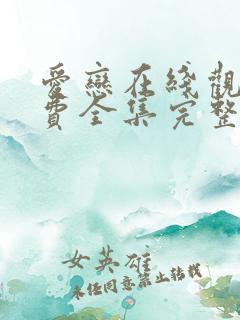 愛戀在綫觀
費全集完整
女英雄
未经同意禁止转载